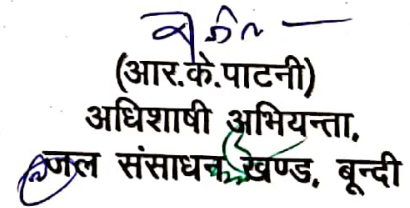 (आर.के.पाटनी)
अधिशाषी अभियन्ता,
जल संसाधन खण्ड, बून्दी